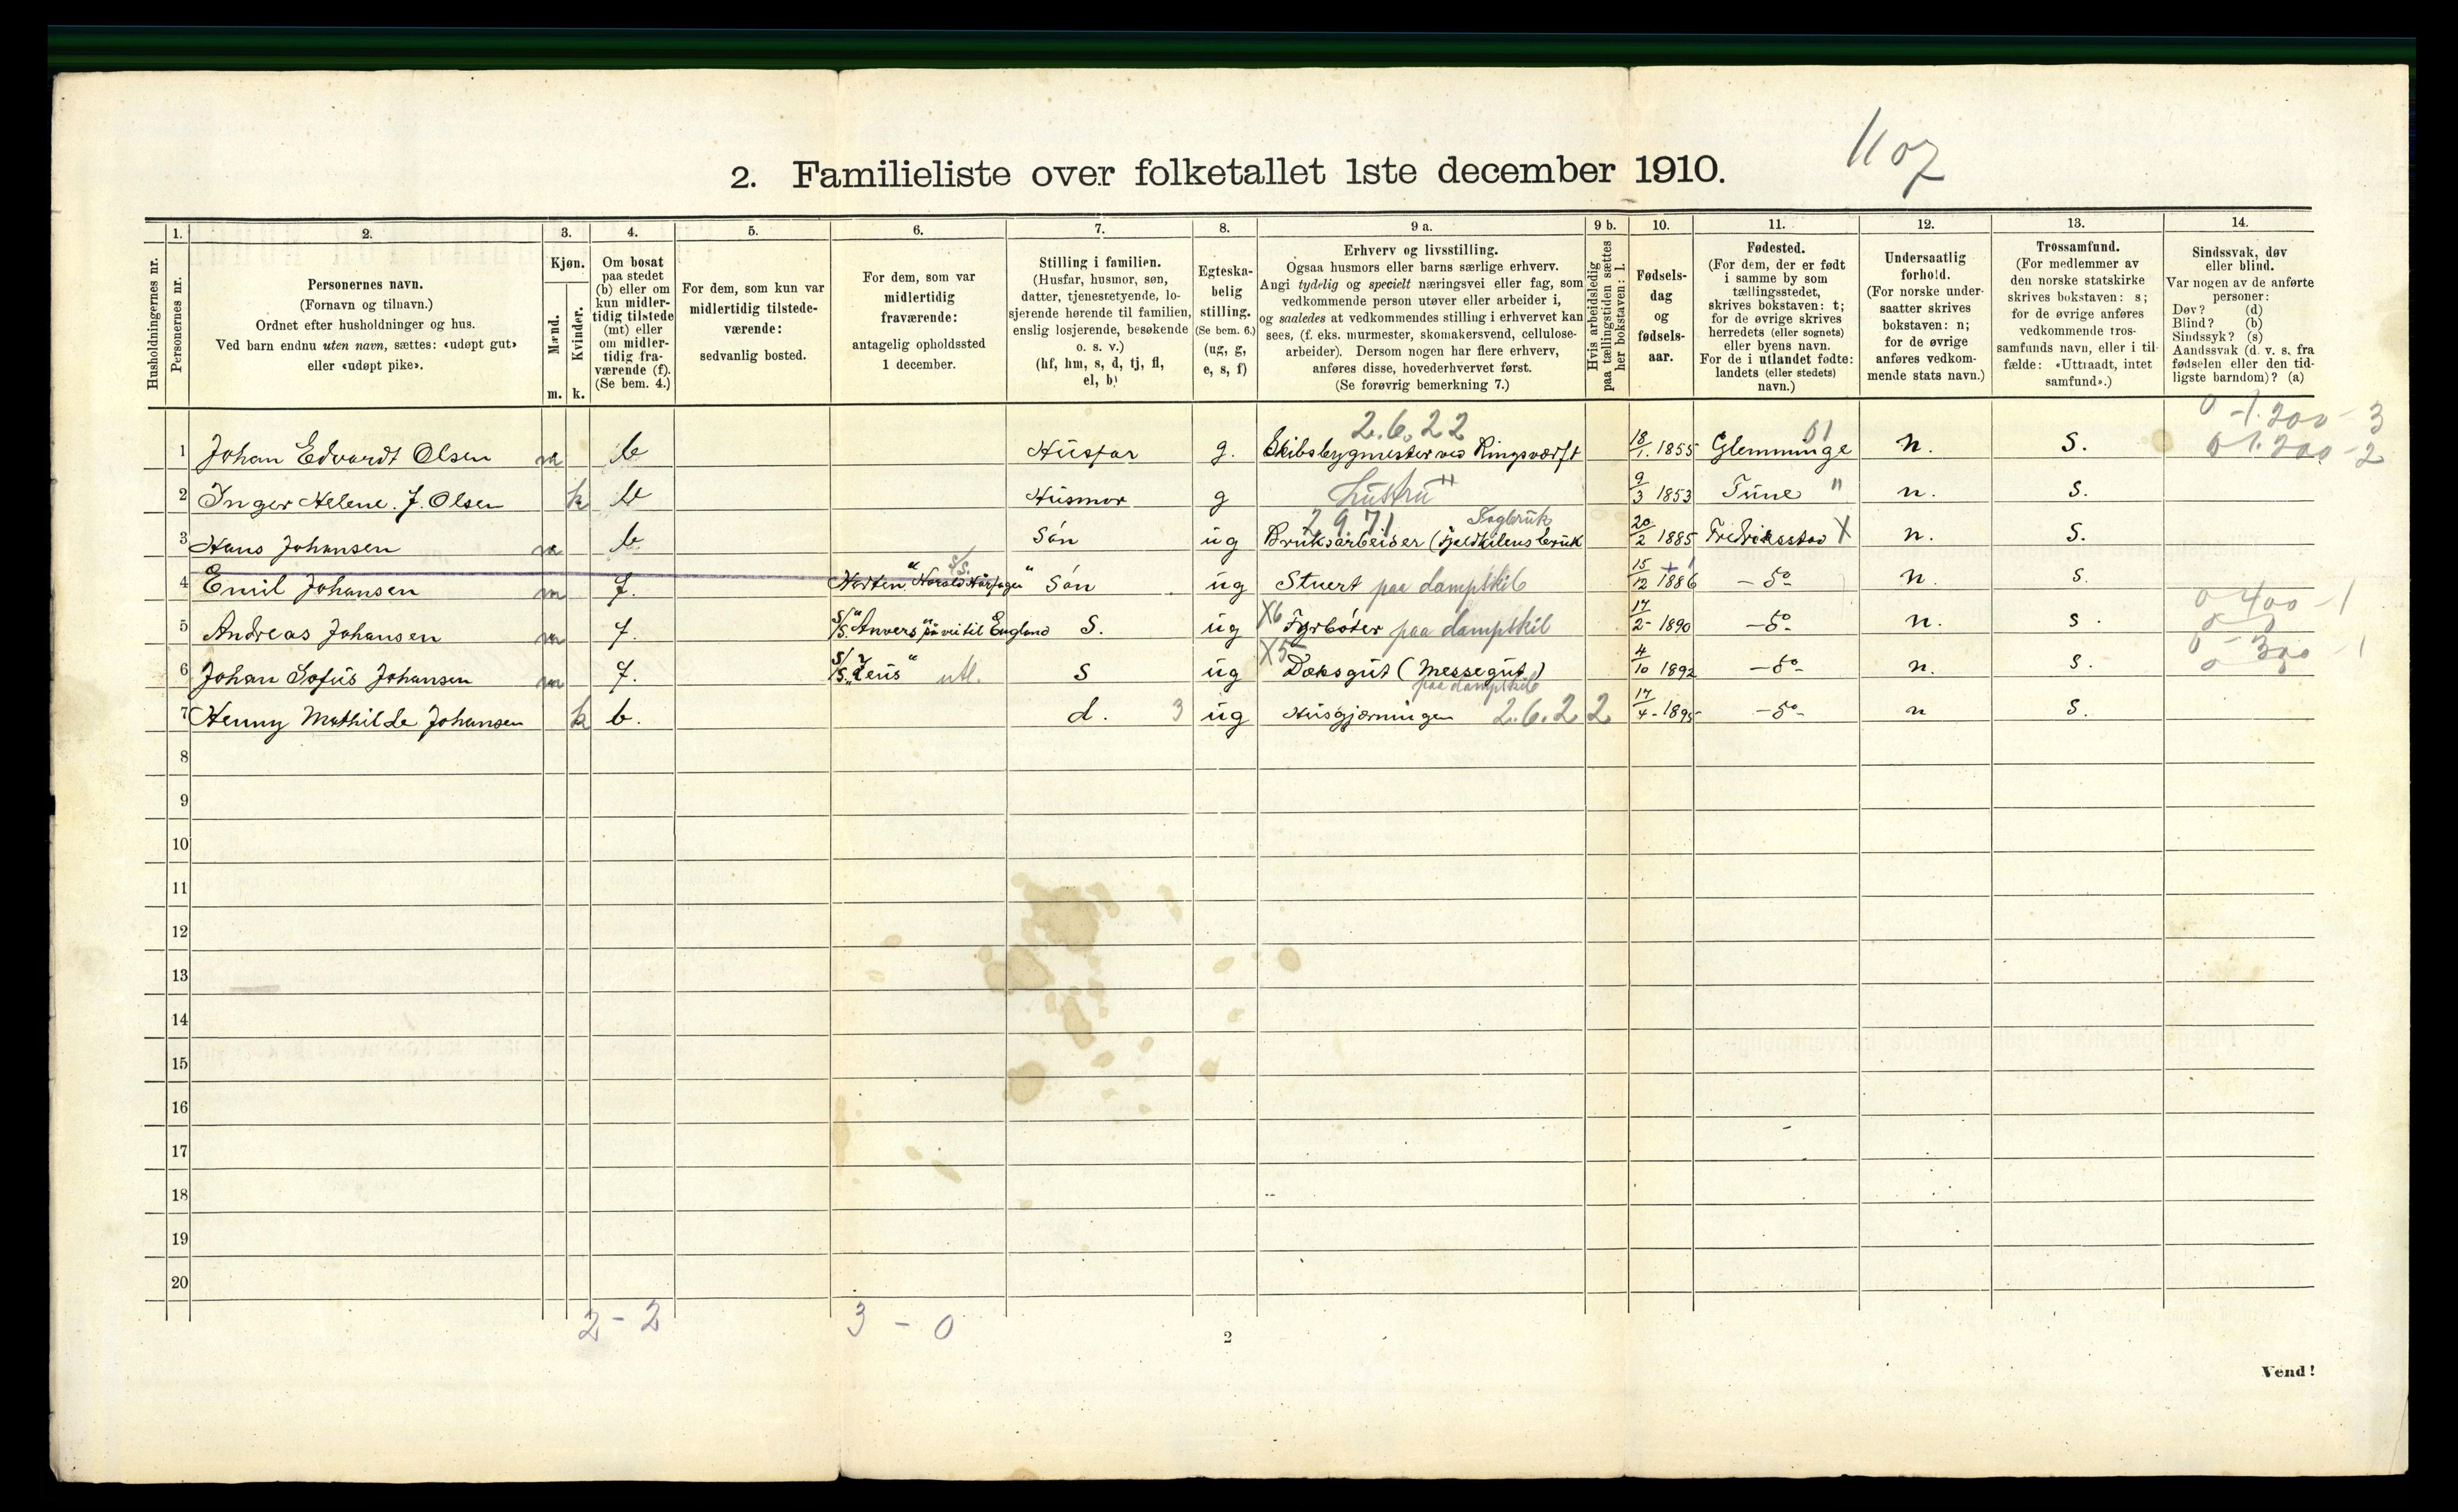 1107
2. Familieliste over folketallet 1ste december 1910.
Husholdningernes nr.
1. Personernes nr.
2. Personernes navn.
(Fornavn og tilnavn.)
Ordnet efter husholdninger og hus.
Ved barn endnu uten navn, sættes: «udøpt gut»
eller «udøpt pike».
3. Kjøn.
Mænd. m.
Kvinder. k.
4. Om bosat
paa stedet
(b) eller om
kun midler-
tidig tilstede
(mt) eller
om midler-
tidig fra-
værende (f).
(Se bem. 4.)
5. For dem, som kun var
midlertidig tilstede-
værende:
sedvanlig bosted.
6. For dem, som var
midlertidig
fraværende:
antagelig opholdssted
1 december.
7. Stilling i familien.
(Husfar, husmor, søn,
datter, tjenestetyende, lo-
sjerende hørende til familien,
enslig losjerende, besøkende
o. s. v.)
(hf, hm, s, d, tj, fl,
el, b)
8. Egteska-
belig
stilling.
(Se bem. 6.)
(ug, g,
e, s, f)
9 a. Erhverv og livsstilling.
Ogsaa husmors eller barns særlige erhverv.
Angi tydelig og specielt næringsvei eller fag, som
vedkommende person utøver eller arbeider i,
og saaledes at vedkommendes stilling i erhvervet kan
sees, (f. eks. murmester, skomakersvend, cellulose-
arbeider). Dersom nogen har flere erhverv,
anføres disse, hovederhvervet først.
(Se forøvrig bemerkning 7.)
9 b. Hvis arbeidsledig
paa tællingstiden sættes
her bokstaven: l.
10. Fødsels-
dag
og
fødsels-
aar.
11. Fødested.
(For dem, der er født
i samme by som
tællingsstedet,
skrives bokstaven: t;
for de øvrige skrives
herredets (eller sognets)
eller byens navn.
For de i utlandet fødte:
landets (eller stedets)
navn.)
12. Undersaatlig
forhold.
(For norske under-
saatter skrives
bokstaven: n;
for de øvrige
anføres vedkom-
mende stats navn.)
13. Trossamfund.
(For medlemmer av
den norske statskirke
skrives bokstaven: s;
for de øvrige anføres
vedkommende tros-
samfunds navn, eller i til-
fælde: «Uttraadt, intet
samfund».)
14. Sindssvak, døv
eller blind.
Var nogen av de anførte
personer:
Døv? (d)
Blind? (b)
Sindssyk? (s)
Aandssvak (d. v. s. fra
fødselen eller den tid-
ligste barndom)? (a)
2.6.22 0 - 1.200 - 3
1 Johan Edvardt Olsen m b Husfar g. Skibsbygmester ved Ringsværft 18/1. 1855 Glemminge 01 n. S. 0 1.200 - 2
2 Inger Helene. J. Olsen k b Husmor g hustru 9/3 1853 Tune " n. S.
2.9.71 Sagbruk
3 Hans Johansen m b Søn ug Bruksarbeider (Kjældkilens bruk 20/2 1885 Fredriksstad X n. S.
4 Emil Johansen m f. Horten "Harald Hårfager" S/S. Søn ug Stuert paa dampskib 15/12 1886 - do - n. S.
0 400 - 1
5 Andreas Johansen m f. S/S "Anvers" på vei til England S. ug X6 Fyrbøter paa dampskib 17/2 - 1890 - do - n. S.
0 - 300 - 1
6 Johan Sofus Johansen m f. S/S. "Zeus" utl. S ug X5 Dæksgut (Messegut) 4/10 1892 - do - n. S.
paa dampskib
7 Henny Mathilde Johansen k b. d. 3 ug Husgjærningen 2.6.22 17/4 - 1895 - do - n S.
8
9
10
11
12
13
14
15
16
17
18
19
20
2 - 2 3 - 0
2
Vend!